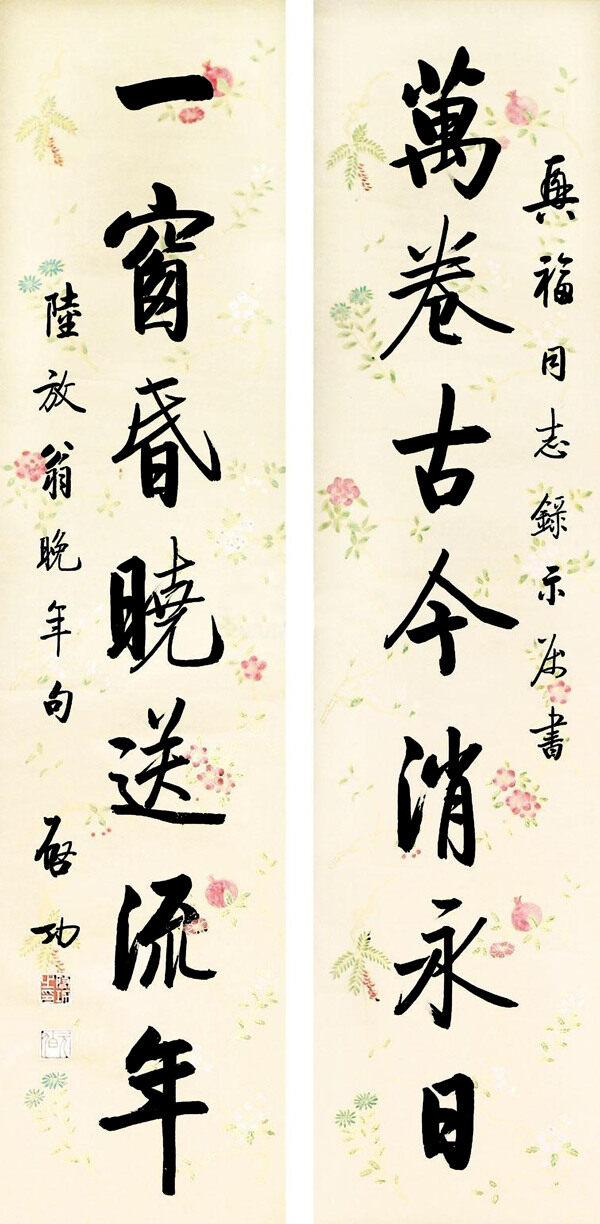 興福同志錄示属書
萬卷古今消永日
一窗昏曉送流年
陸放翁晚年句
启功